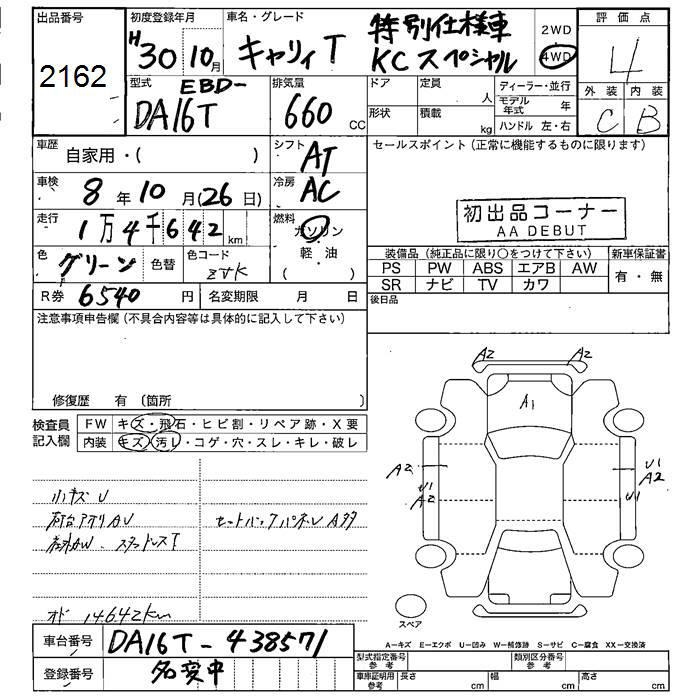 出品番号 初度登録年月 車名・グレード 2WD 評価点
2162 H30 10月 キャリィT 特別仕様車 4WD 4
KCスペシャル
型式 排気量 ドア 定員 人 ディーラー・並行 外装 内装
EBD-
DA16T 660 CC 形状 積載 kg モデル年式 年 C B
ハンドル 左・右
車歴 自家用・( ) シフト AT セールスポイント (正常に機能するものに限ります)
車検 8年10月(26日) 冷房 AC
初出品コーナー
AA DEBUT
走行 1万4千642km 燃料 ガソリン
軽・油
( )
色 グリーン 色替 色コード ZVK
装備品 (純正品に限り○をつけて下さい) 新車保証書
PS PW ABS エアB AW 有・無
SR ナビ TV カワ
R券 6540円 名変期限 月 日 後日品
注意事項申告欄 (不具合内容等は具体的に記入して下さい)
修復歴 有 (箇所 )
検査員記入欄 FW キズ・飛石・ヒビ割・リペア跡・X要
内装 キズ・汚レ・コゲ・穴・スレ・キレ・破レ
A2 A2
A1
A2 U1
A2
U1 U1
A2
小キズU
荷台アオリAU セットバックパネルU A多
スタッドレスT
オド 14642km
スペア
A−キズ E−エクボ U−凹み W−補修跡 S−サビ C−腐食 XX−交換済
車台番号 DA16T-438571 型式指定番号 参考 類別区分番号 参考
登録番号 名変中 車庫証明用 参考 長さ cm 幅 cm 高さ cm